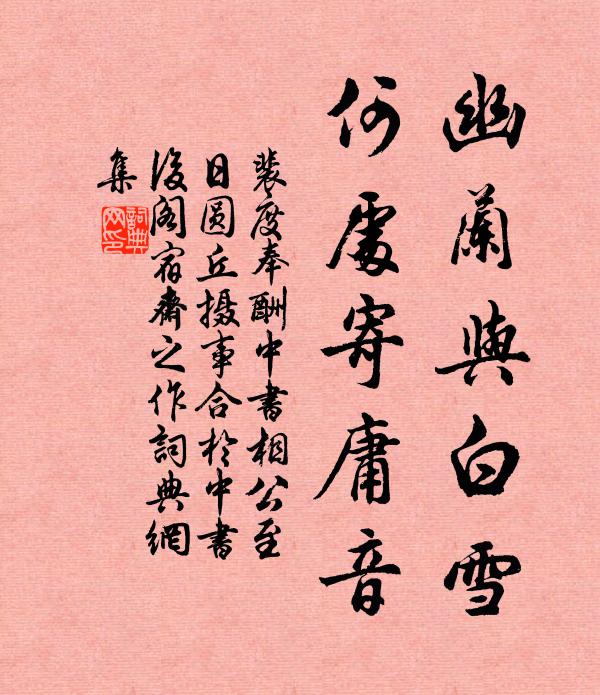 幽蘭與白雪
何處寄庸音
裴度奉酬中書相公至
日圓丘摄事合於中書
後阁宿齋之作詞典網
集
詞典
网印